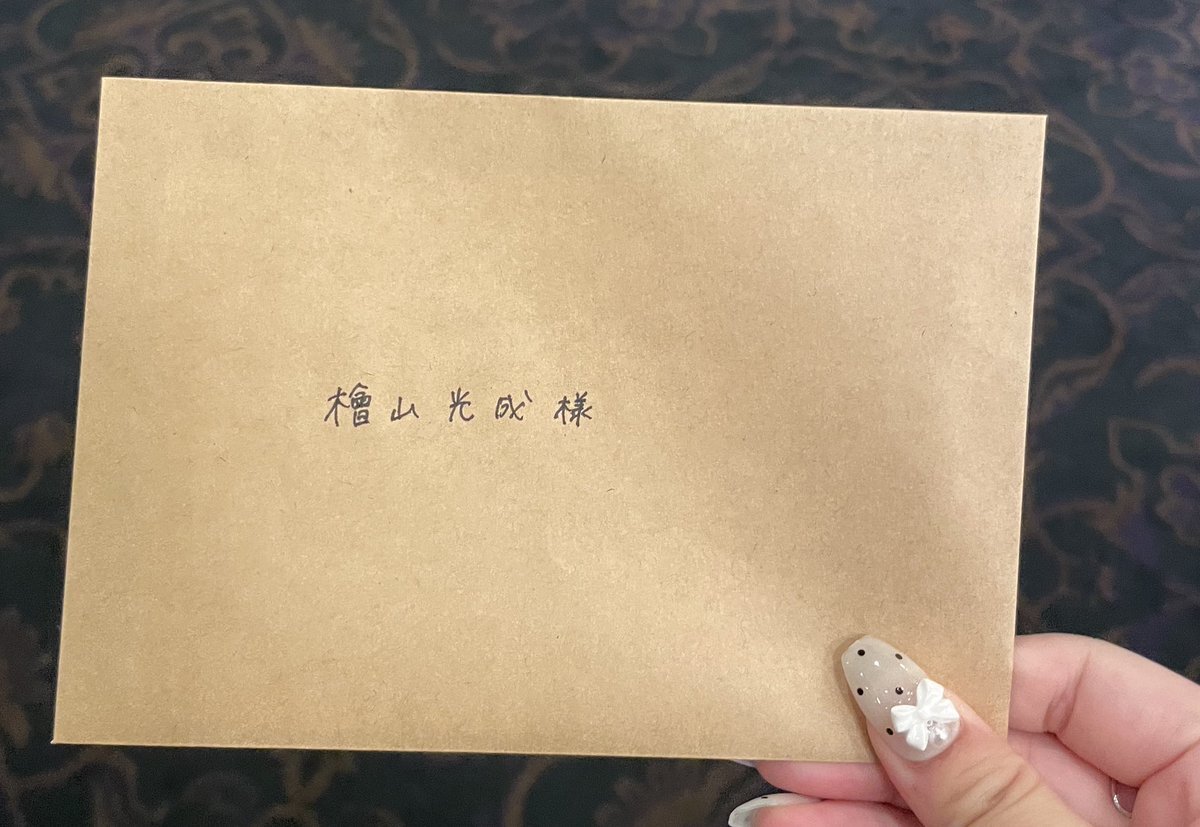 檜山光成様